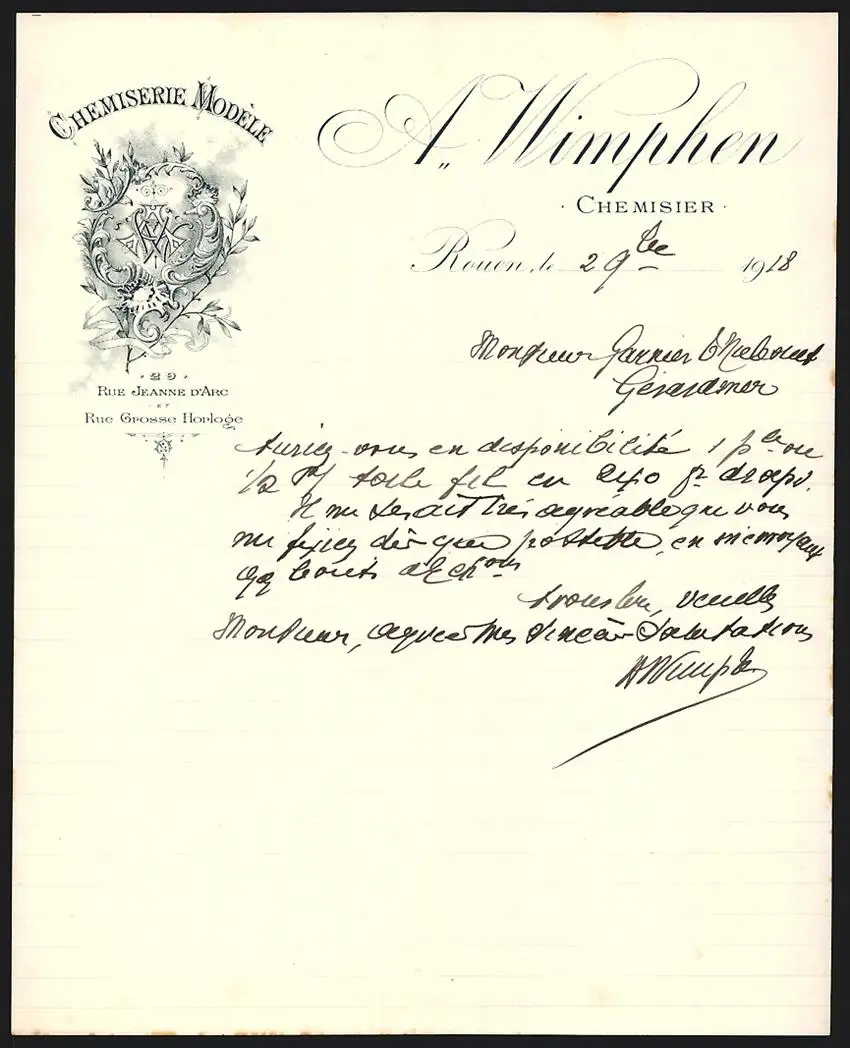 CHEMISERIE MODÈLE
A. Wimphen
· CHEMISIER ·
Rouen, le 2 9bre 1918
Monsieur Garnier Thiebaut
Gérardmer
· 29 ·
RUE JEANNE D'ARC
ET
Rue Grosse Horloge
Auriez-vous en disponibilité 1 pce ou
1/2 toile fil en 240 pr draps.
Il me serait très agréable que vous
me fixiez dès que possible, en m'envoyant
qq bouts d'échons
veuillez
Monsieur, agréer mes sincères salutations
AWimphen